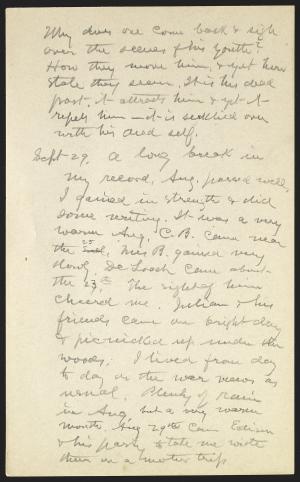 Why does one come back & sigh
over the scenes of his youth?
How they move him, & yet how
stale they seem. It is his dead
past, it attracts him & yet it
repels him — it is sicklied over
with his dead self.
Sept 29. A long break in
my record, Aug. passed well,
I gained in strength & did
some writing. It was a very
warm Aug, C.B. came near
the 25 Mrs B. gained very
slowly. De Loach came about
the 23. The sight of him
cheered me. Julian & his
friends came one bright day
& picnicked up under the
woods. I lived from day
to day on the war news as
usual. Plenty of rain
in Aug, but a very warm
month. Aug 29th Came Edison
& his party & take me with
them on a motor trip